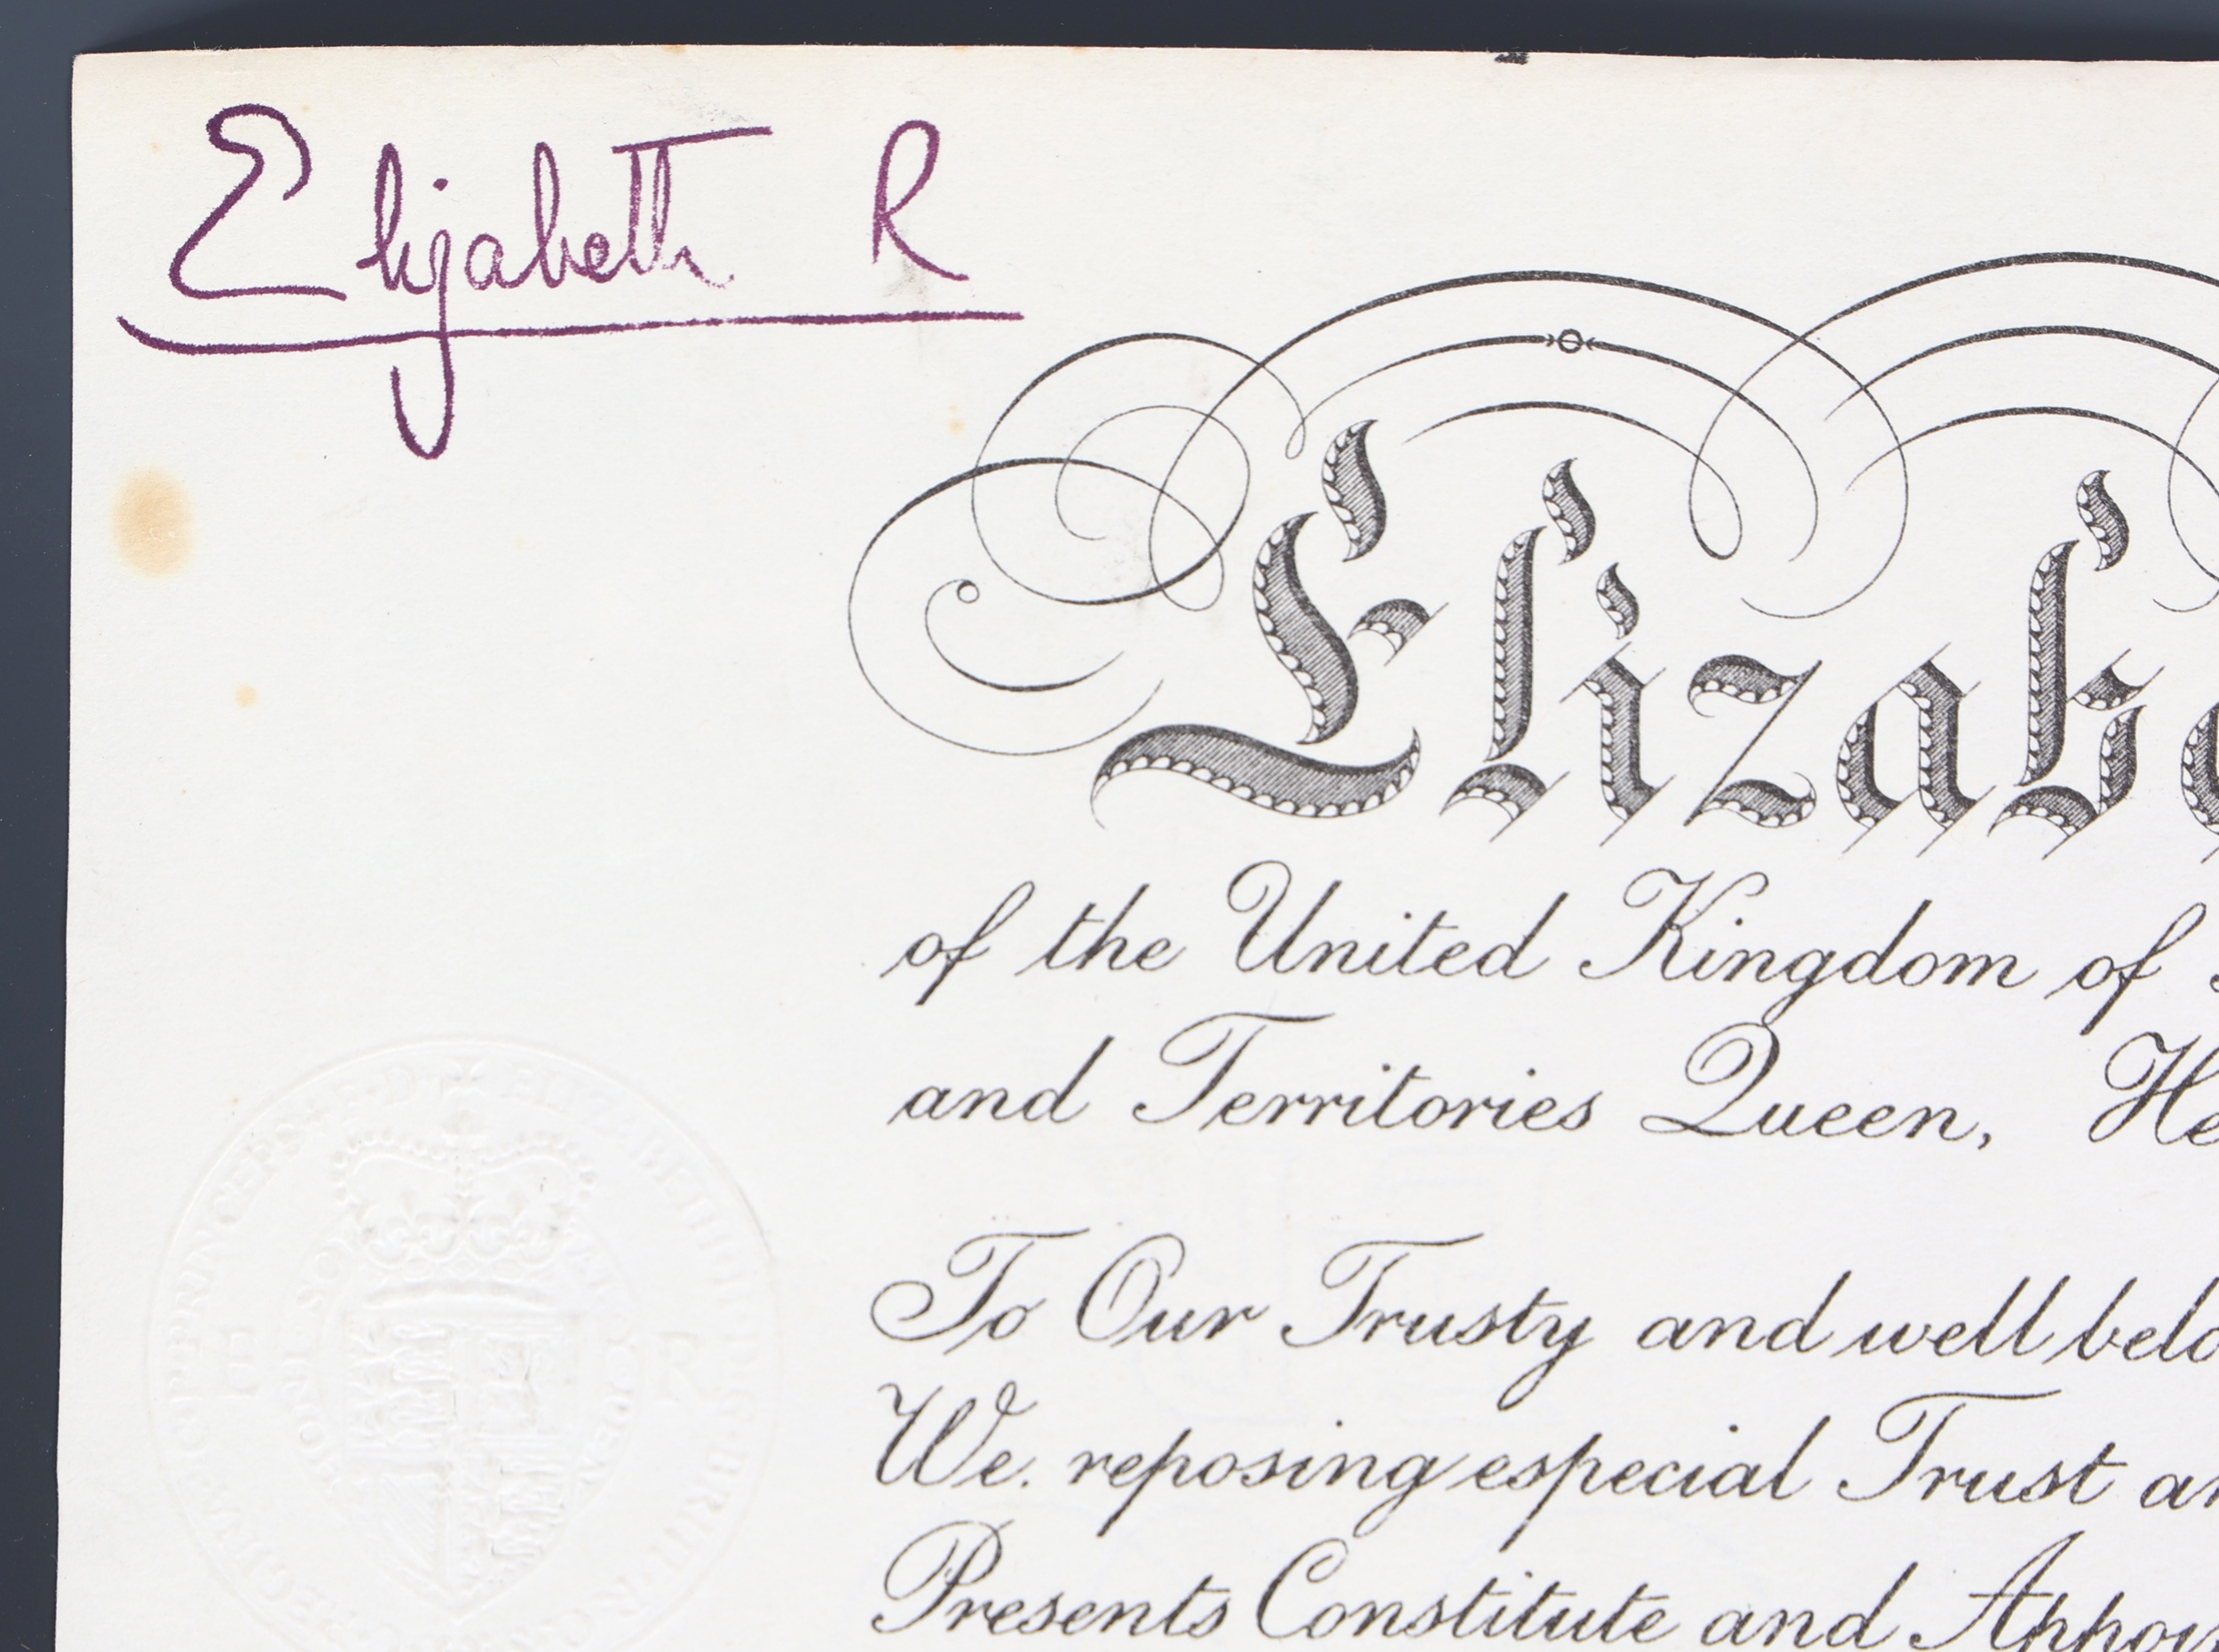 Elizabeth R
Elizab
of the United Kingdom of
and Territories Queen, He
To Our Trusty and well belo
We. reposing especial Trust an
Presents Constitute and Appoi
E R
HONI SOI